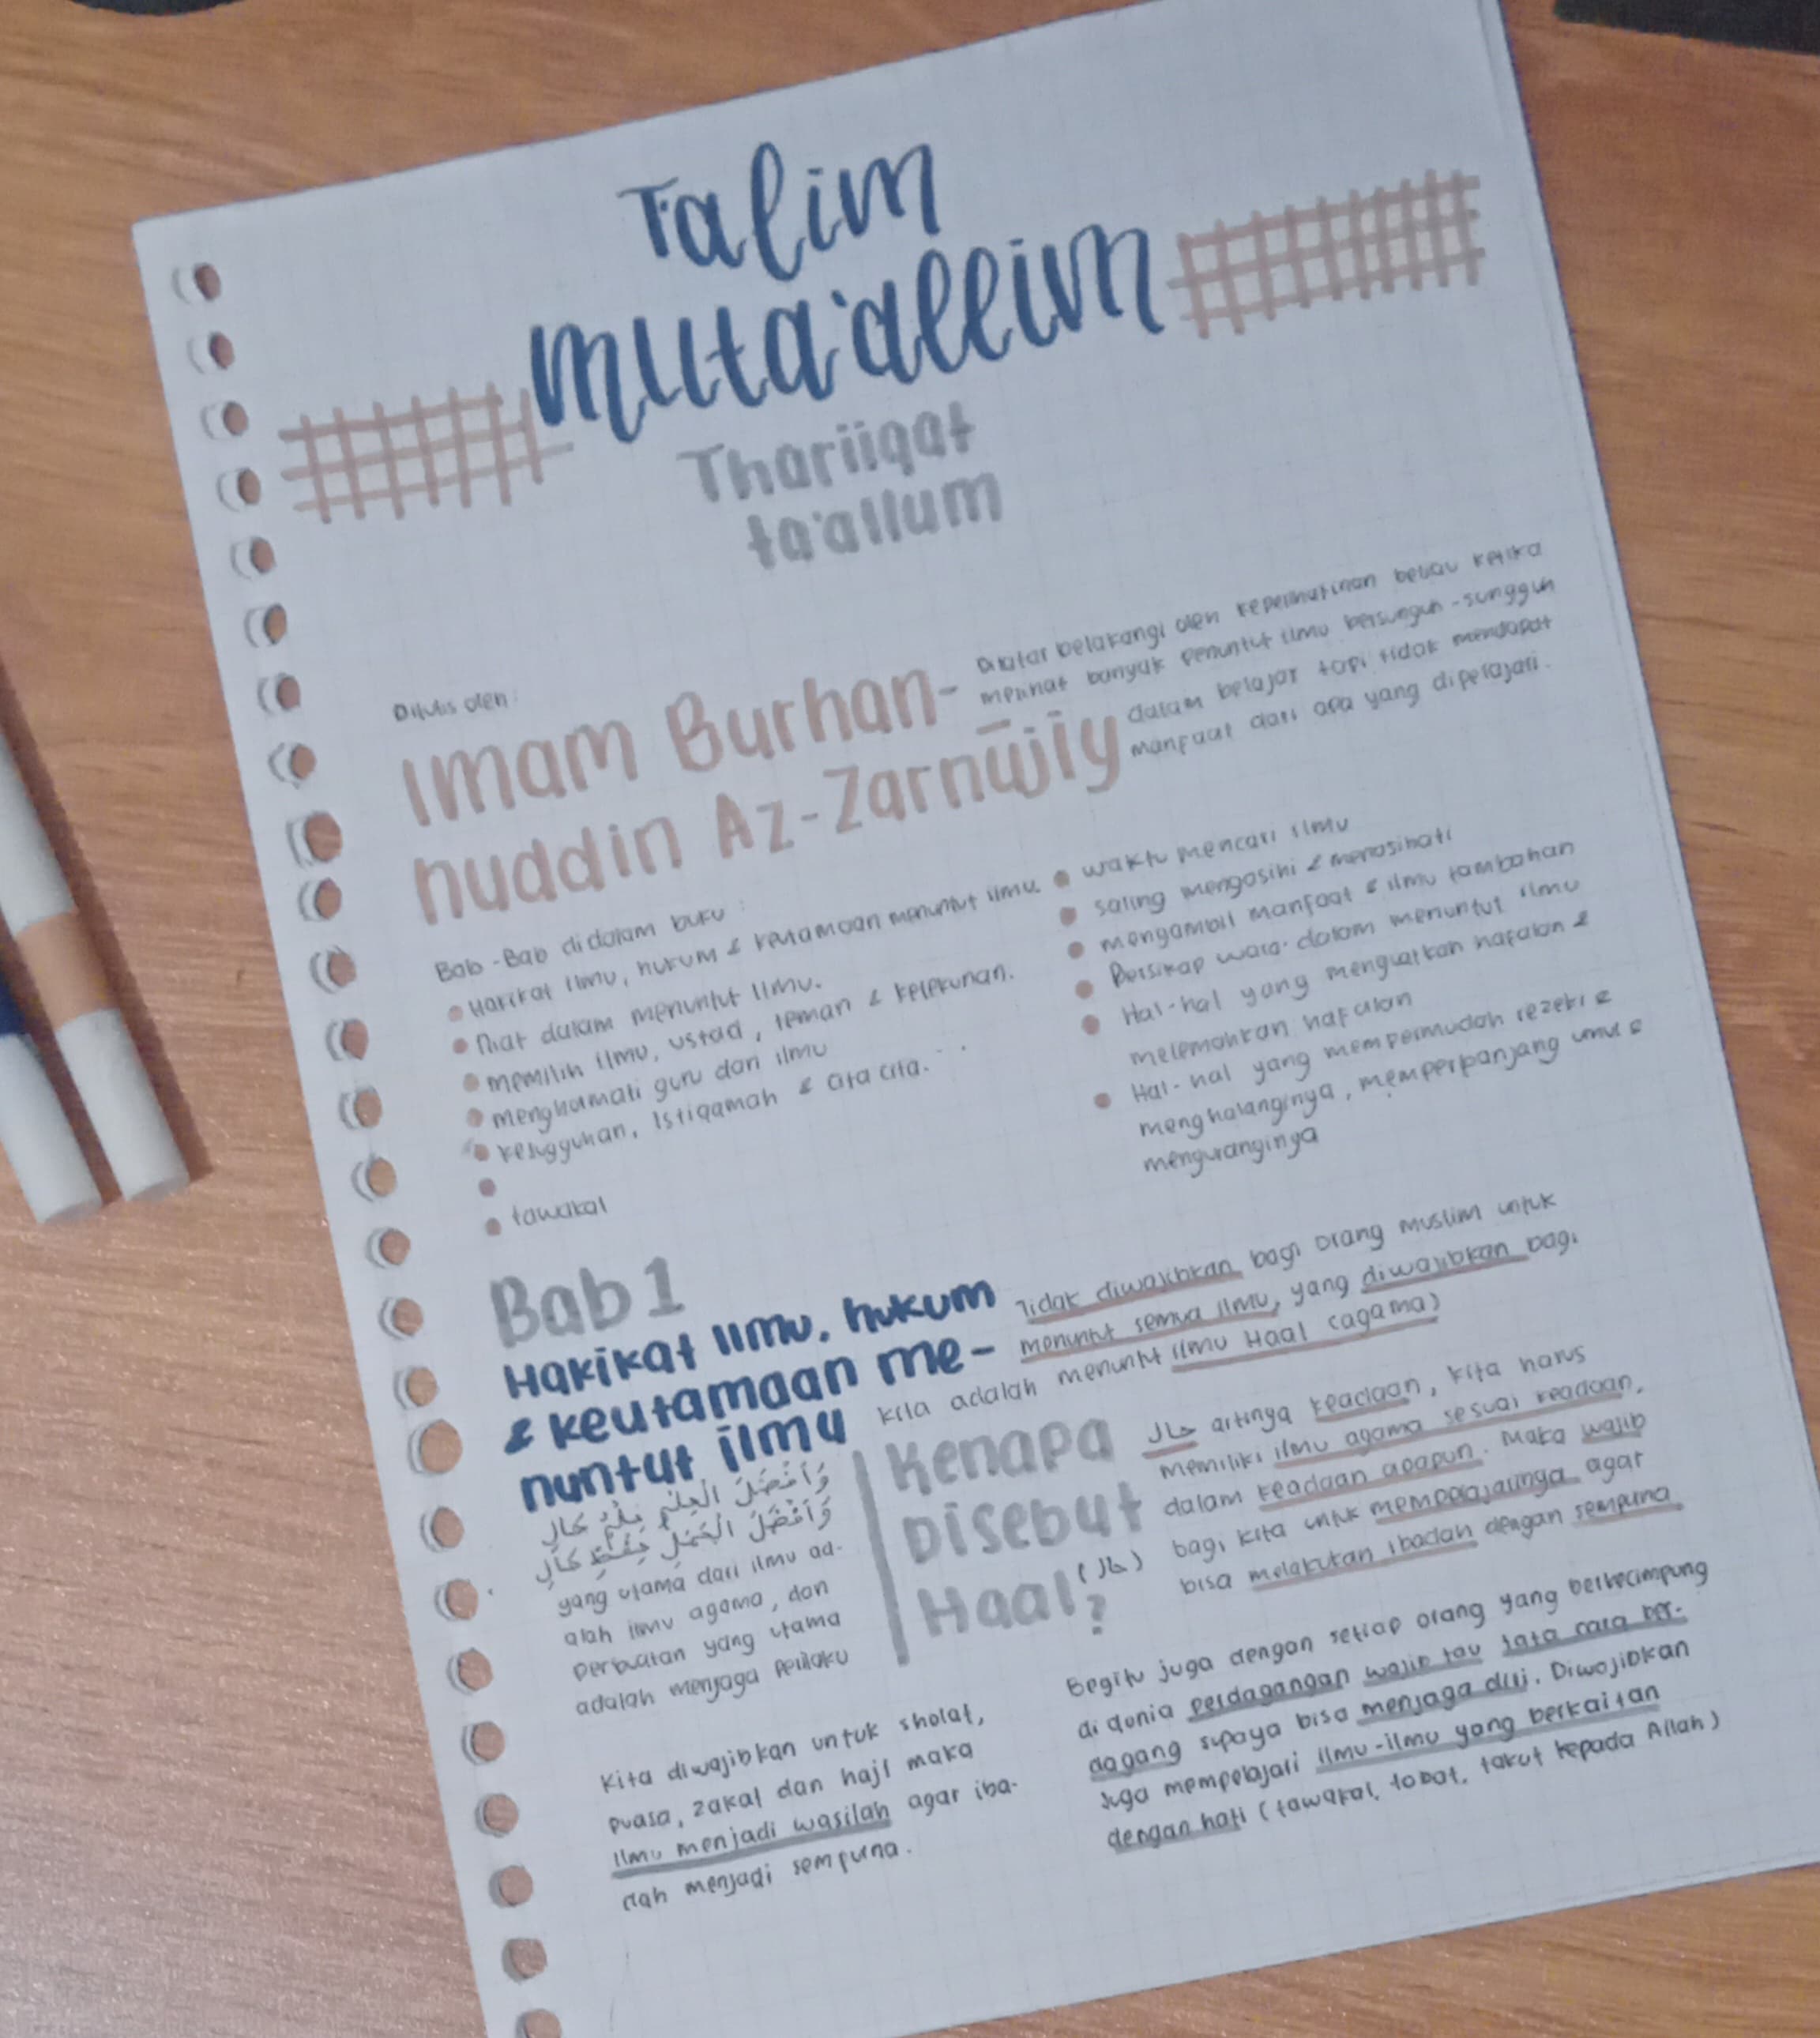 Talim
muta'allim
Thariiqat
ta'allum
Ditulis oleh:
Imam Burhan-
nuddin Az-Zarnūjīy
Dilatar belakangi oleh keperihatinan beliau ketika
melihat banyak penuntut ilmu bersungguh-sungguh
dalam belajar tapi tidak mendapat
manfaat dari apa yang dipelajari.
Bab-Bab didalam buku:
Hakikat ilmu, hukum & keutamaan menuntut ilmu.
Niat dalam menuntut ilmu.
memilih ilmu, ustad, teman & ketekunan.
menghormati guru dan ilmu
kesugguhan, Istiqamah & cita cita.
tawakal
waktu mencari ilmu
saling mengasihi & menasihati
mengambil manfaat & ilmu tambahan
Bersikap wara' dalam menuntut ilmu
Hal-hal yang menguatkan hafalan &
melemahkan hafalan
Hal-hal yang mempermudah rezeki &
menghalanginya, memperpanjang umur &
menguranginya
Bab 1
Hakikat Ilmu, hukum
& keutamaan me-
nuntut ilmu
Tidak diwajibkan bagi orang muslim untuk
menuntut semua ilmu, yang diwajibkan bagi
kita adalah menuntut ilmu Haal (agama)
وَأَفْضَلَ الْعِلْمِ عِلْمُ حَالِ
وَأَفْضَلَ الْعَمَلِ حِفْظُ حَالِ
yang utama dari ilmu ad-
alah ilmu agama, dan
perbuatan yang utama
adalah menjaga perilaku
Kenapa
Disebut
Haal (حال)?
حال artinya keadaan, kita harus
memiliki ilmu agama sesuai keadaan,
dalam keadaan apapun. Maka wajib
bagi kita untuk mempelajarinya agar
bisa melakukan ibadah dengan sempurna
Kita diwajibkan untuk sholat,
puasa, zakat dan haji maka
ilmu menjadi wasilah agar iba-
dah menjadi sempurna.
Begitu juga dengan setiap orang yang berkecimpung
di dunia perdagangan wajib tau tata cara ber-
dagang supaya bisa menjaga diri. Diwajibkan
juga mempelajari ilmu-ilmu yang berkaitan
dengan hati (tawakal, tobat, takut kepada Allah)